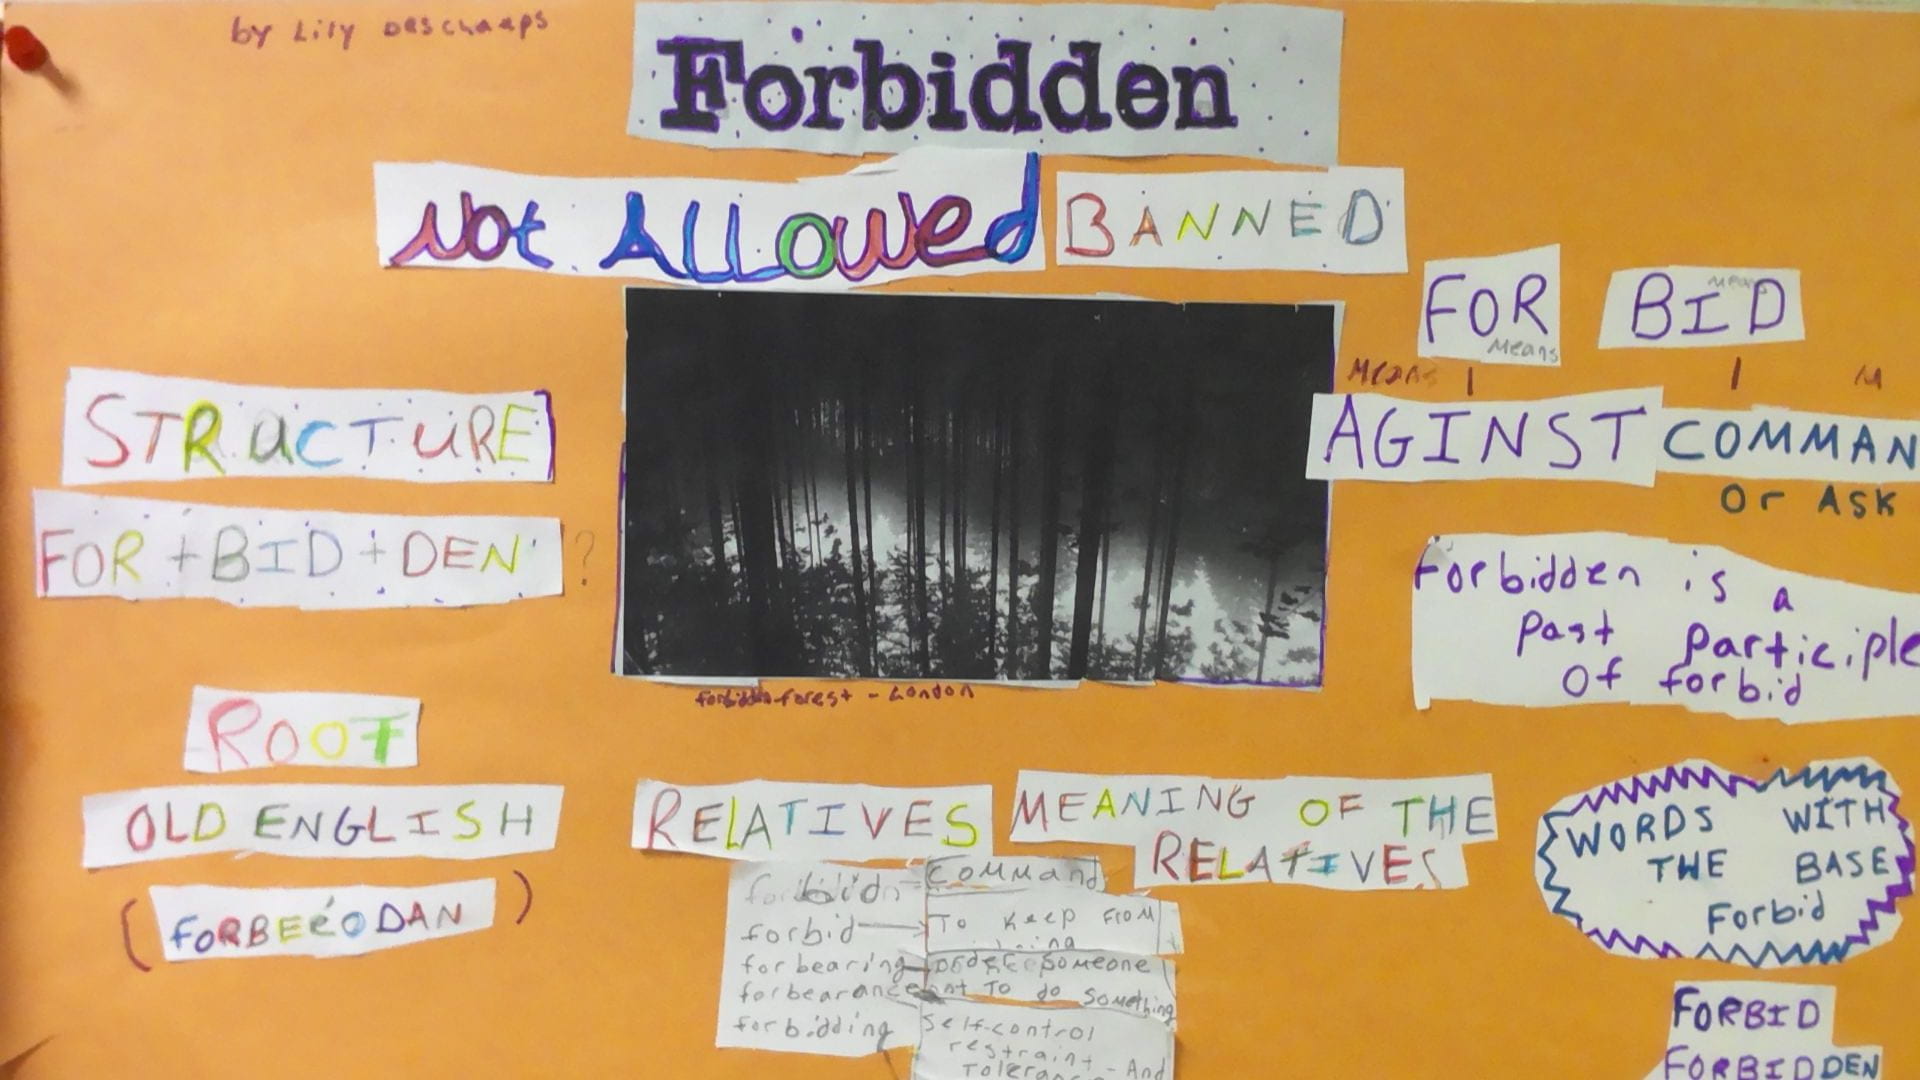 by Lily Deschamps
Forbidden
Not ALLOWed BANNED
FOR BID
Means
Means
Means
AGINST COMMAN
Or ASK
STRUCTURE
FOR + BID + DEN ?
Forbidden is a
Past Participle
Of forbid
forbidden forest - London
ROOT
OLD ENGLISH
(FORBEEODAN)
RELATIVES
MEANING OF THE
RELATIVES
forbid
forbearing
forbearance
forbidding
Command
To Keep From
order someone
not To do Something
Self-control
restraint - And
WORDS WITH
THE BASE
Forbid
FORBID
FORBIDDEN